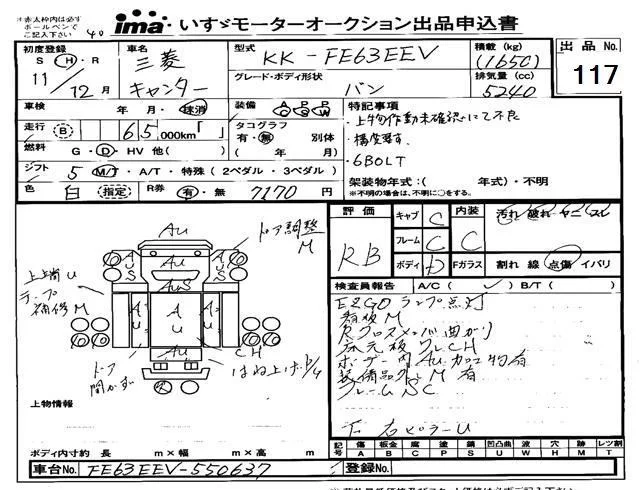 ※赤太枠内は必ず
ボールペンで
ご記入下さい
40
ima いすゞモーターオークション出品申込書
出品 No.
117
初度登録
S・H・R
11/12月
車名
三菱
キャンター
型式
KK-FE63EEV
グレード・ボディ形状
バン
積載(kg)
(1650)
排気量(cc)
5240
車検
年・月・抹消
装備
A/C P/S P/W
特記事項
・上物作動未確認にて不良
・6BOLT
走行(B)
65,000km「 」
タコグラフ
有・無 別体
( 年 月)
燃料
G・D・HV 他( )
シフト
5 M/T・A/T・特殊(2ペダル・3ペダル)
架装物年式:( 年式)・不明
※年式不明の場合は、不明に○をする。
色
白(指定)
R券
有・無 7170円
評価
RB
キャブ C
フレーム C
ボディ D
内装 C
汚れ 破れ ヤニ スレ
Fガラス
割れ 線 点傷 イバリ
検査員報告
A/C( ✓ ) B/T( )
EZGOランプ点灯
看板M
Rクロスメンバ曲がり
ボデー内Au加工物有
装備品外しM有
フレームSC
下 右ピラーU
Au
ドア調整
M
AUS
上上端U
テープ
補修M
ドア
開かず
CH
はね上げ
上物情報
ボディ内寸約 長 m×幅 m×高 m
記号
傷 板金 腐 塗 錆 凹凸曲 波 穴 無 レツ割
A B C P S U W H M T
車台No.
FE63EEV-550637
登録No.